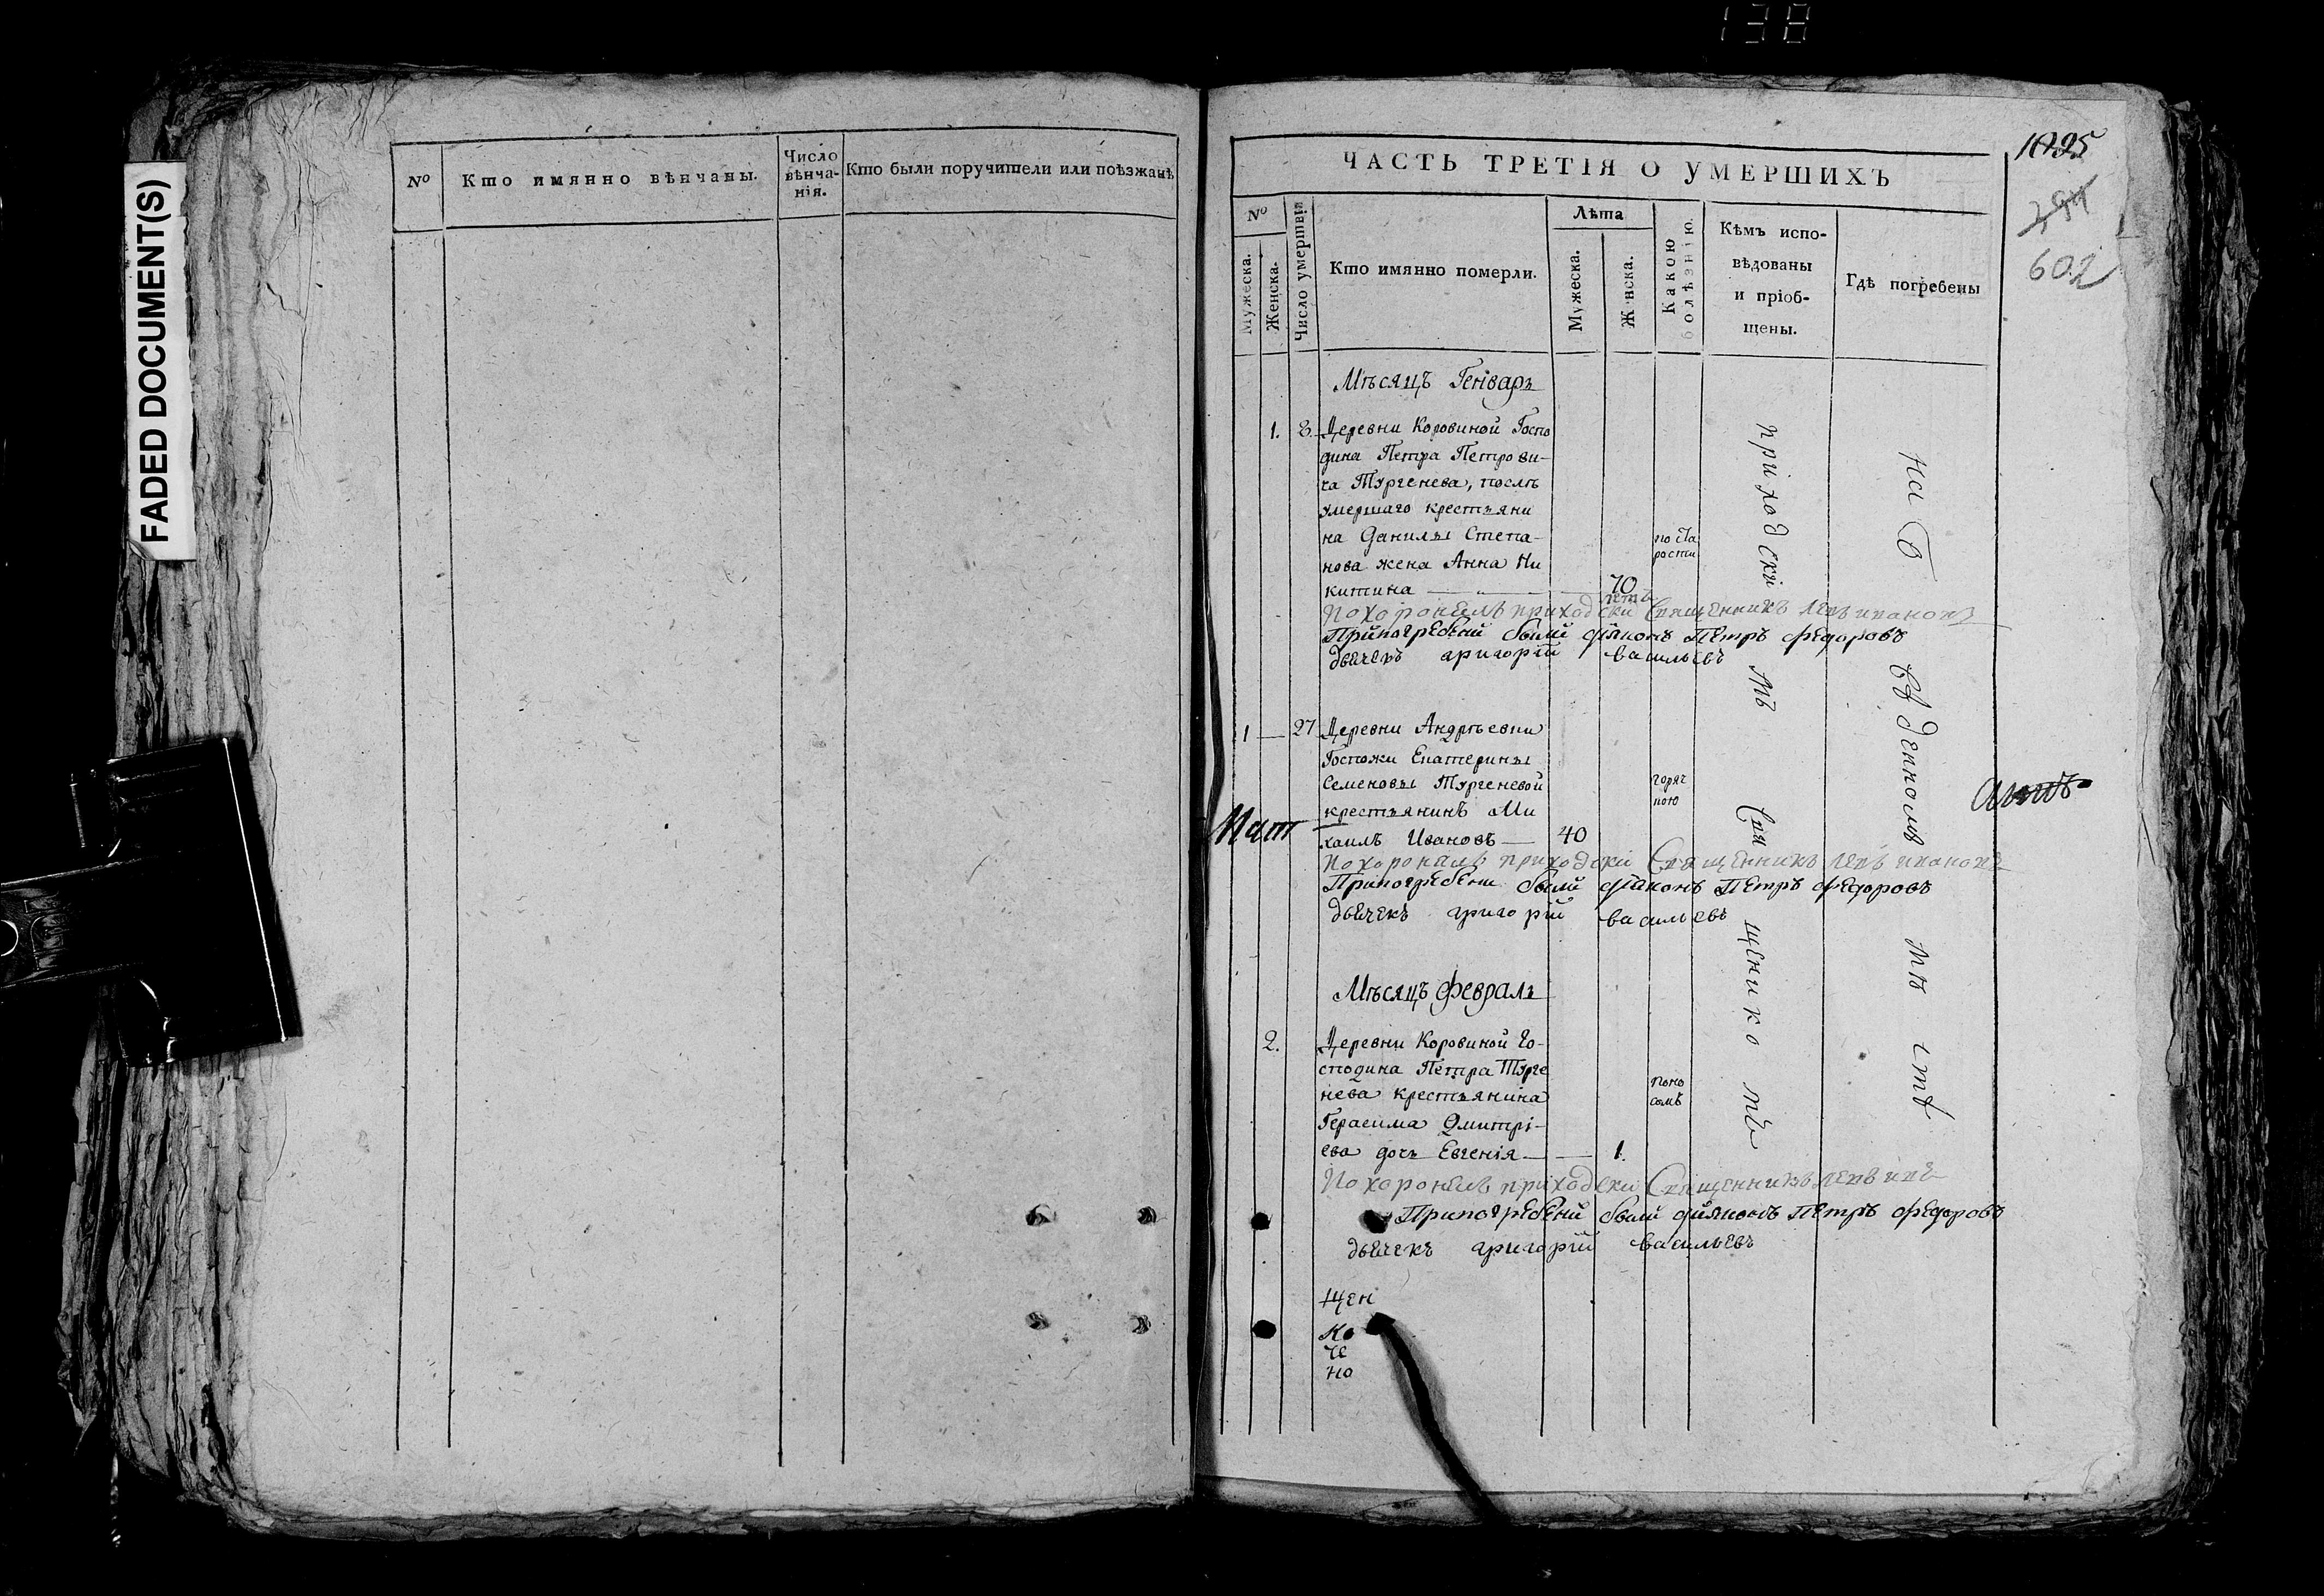 138
FADED DOCUMENT(S)
№
Кто имянно вѣнчаны.
Число вѣнча-нія.
Кто были поручители или поѣзжанѣ
ЧАСТЬ ТРЕТІЯ О УМЕРШИХЪ
602
№
Мужеска.
Женска.
Число умертвія
Кто имянно померли.
Лѣта
Мужеска.
Ж нска.
Какою болѣзнію.
Кѣмъ испо-
вѣдованы
и пріоб-
щены.
Гдѣ погребены
Мѣсяцъ Генварь
1. 8 Деревни Коровиной Госпо
дина Петра Петрови-
ча Тургенева, послѣ
умершаго крестьяни
на Данилы Степа-
нова жена Анна Ни
китина — 70 лѣтъ
по ста
рости
Похоронилъ приходски Священникъ Левъ
Припогребени были діяконъ Петръ Федоровъ
дьячекъ григорій васильевъ
1 — 27 Деревни Андрѣевки
Госпожи Екатерины
Семеновы Тургеневой
крестьянинъ Ми
хаилъ Ивановъ — 40
горяч
кою
Похоронилъ приходскі Священникъ Левъ
Припогребени были діяконъ Петръ Федоровъ
дьячекъ григорій васильевъ
Мѣсяцъ Февраль
2. Деревни Коровиной Го-
сподина Петра Турге
нева крестьянина
Герасима Дмитрі-
ева дочь Евгенія — 1.
поно
сомъ
Похоронилъ приходски Священникъ Левъ
Припогребени были діяконъ Петръ Федоровъ
дьячекъ григорій васильевъ
приходскимъ Священникомъ
на отведенномъ мѣстѣ
щен
ко
че
но